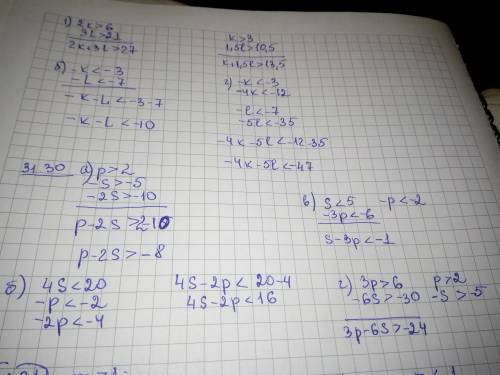 1) 2k>6
3l>21
2k+3l>27
k>3
1,5l>10,5
k+1,5l>13,5
б) -k<-3
-L<-7
-k-L<-3-7
-k-L<-10
г) -k<-3
-4k<-12
-l<-7
-5l<-35
-4k-5l<-12-35
-4k-5l<-47
31.30 а) p>2
-s>-5
-2s>-10
p-2s>2-10
p-2s>-8
в) s<5 -p<-2
-3p<-6
s-3p<-1
б) 4s<20
-p<-2
-2p<-4
4s-2p<20-4
4s-2p<16
г) 3p>6 p>2
-6s>-30 -s>-5
3p-6s>-24